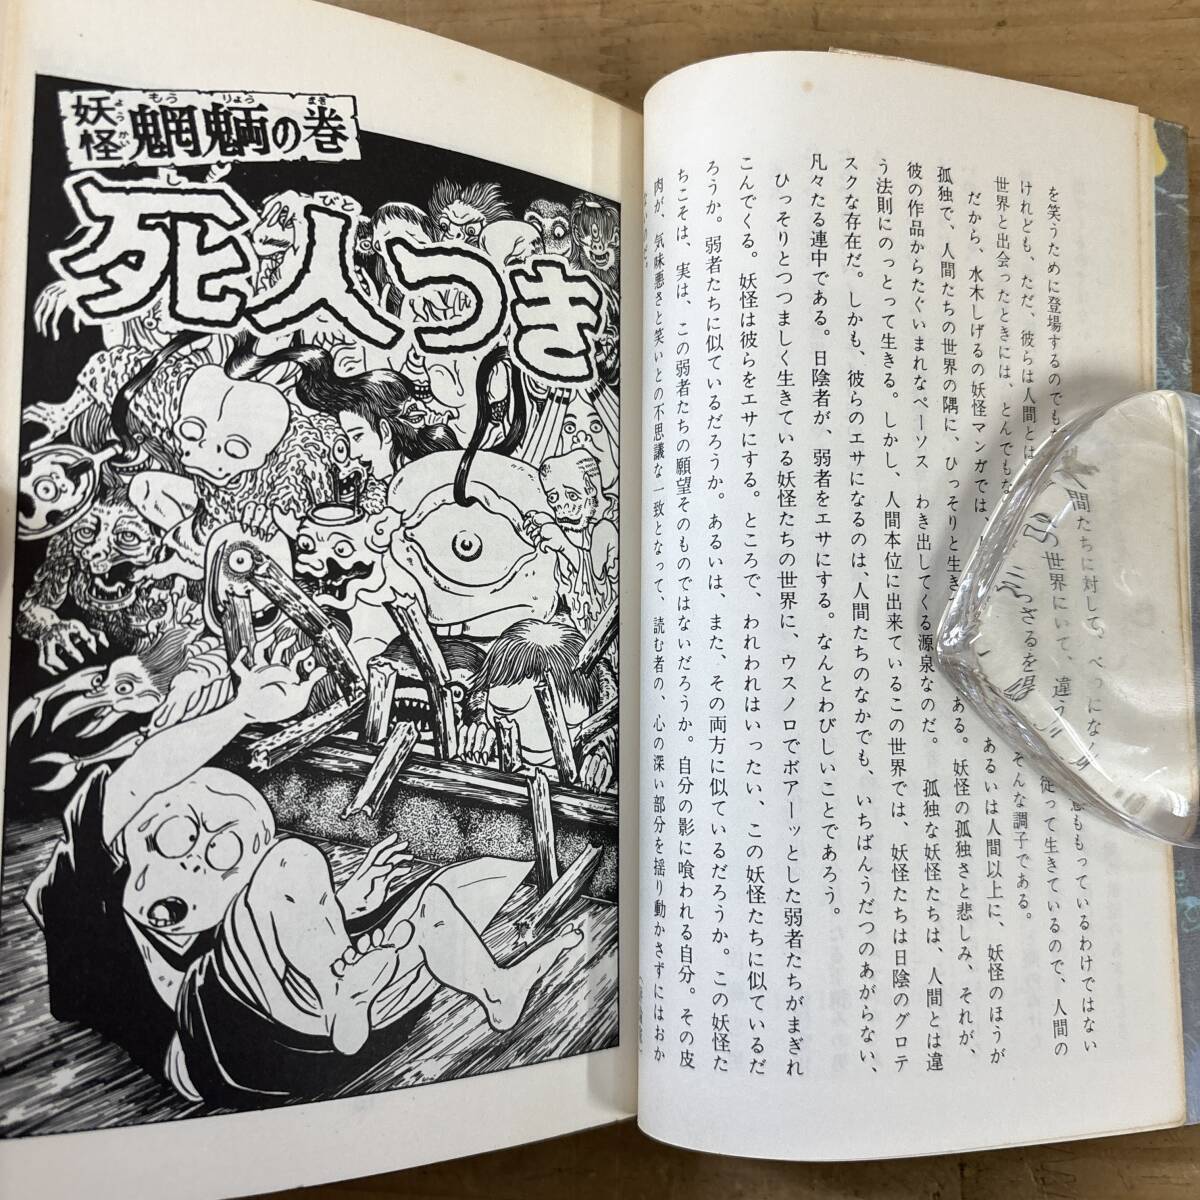 妖怪魍魎の巻
ようかいもうりょうまき
死人つき
しびと
を笑うために登場するのでも 間たちに対して、べつになん 意ももっているわけではない
けれども、ただ、彼らは人間とは 世界にいて、違う 従って生きているので、人間の
世界と出会ったときには、とんでもな ざるを得 そんな調子である。
だから、水木しげるの妖怪マンガでは、 あるいは人間以上に、妖怪のほうが
孤独で、人間たちの世界の隅に、ひっそりと生き ある。妖怪の孤独さと悲しみ、それが、
彼の作品からたぐいまれなペーソス わき出してくる源泉なのだ。孤独な妖怪たちは、人間とは違
う法則にのっとって生きる。しかし、人間本位に出来ているこの世界では、妖怪たちは日陰のグロテ
スクな存在だ。しかも、彼らのエサになるのは、人間たちのなかでも、いちばんうだつのあがらない、
凡々たる連中である。日陰者が、弱者をエサにする。なんとわびしいことであろう。
ひっそりとつつましく生きている妖怪たちの世界に、ウスノロでボアーッとした弱者たちがまぎれ
こんでくる。妖怪は彼らをエサにする。ところで、われわれはいったい、この妖怪たちに似ているだ
ろうか。弱者たちに似ているだろうか。あるいは、また、その両方に似ているだろうか。この妖怪た
ちこそは、実は、この弱者たちの願望そのものではないだろうか。自分の影に喰われる自分。その皮
肉が、気味悪さと笑いとの不思議な一致となって、読む者の、心の深い部分を揺り動かさずにはおか